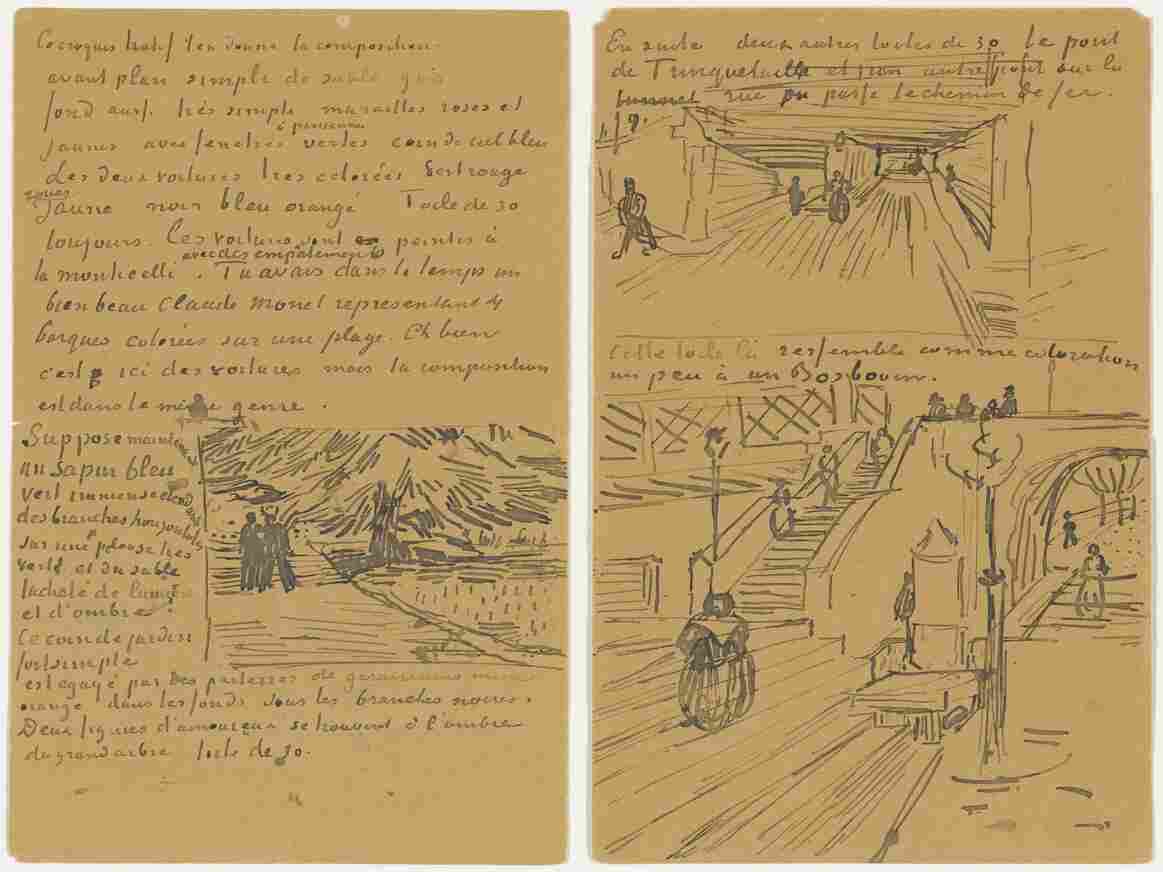 Ce croquis hatif t'en donne la composition
avant plan simple de sable gris
fond aussi très simple murailles roses et
jaunes avec fenêtres à persiennes vertes coin de ciel bleu
Les deux voitures très colorées vert rouge
roues jaune noir bleu orangé Toile de 30
toujours. Les voitures sont peintes à
la monticelli avec des empatements. Tu avais dans le temps un
bien beau Claude Monet representant 4
barques colorées sur une plage. Eh bien
c'est ici des voitures mais la composition
est dans le même genre.
Suppose maintenant
un Sapin bleu
vert immense etendant
des branches horizontales
sur une pelouse très
verte et du sable
tacheté de lumière
et d'ombre.
Ce coin de jardin
fort simple
est egayé par des parterres de geraniums mine
orange dans les fonds sous les branches noires.
Deux figures d'amoureux se trouvent à l'ombre
du grand arbre toile de 30.
En suite deux autres toiles de 30 le pont
de Trinquetaille et un autre pont sur la
rue ou passe le chemin de fer.
Cette toile là ressemble comme coloration
un peu à un Bosboom.